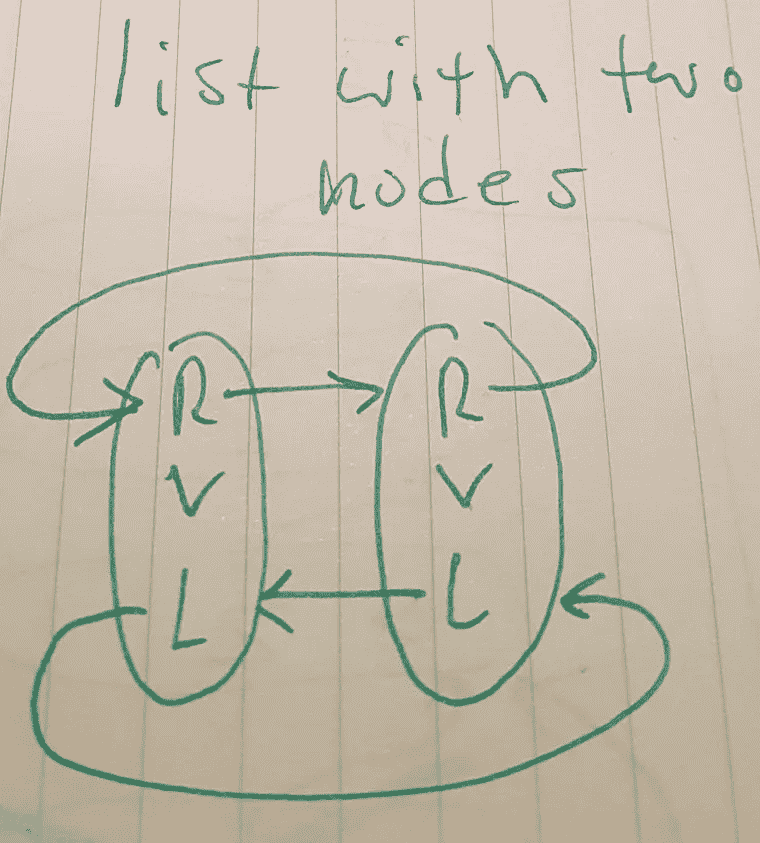 list with two
nodes
R R
V V
L L